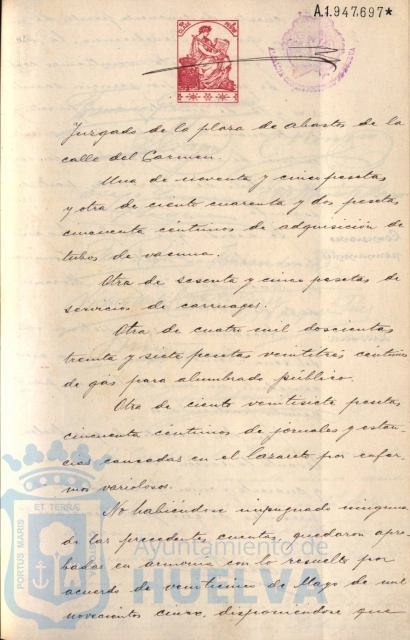 A.1.947.697*
Juzgado de la plaza de abastos de la
calle del Carmen.
Una de noventa y cinco pesetas
y otra de ciento cuarenta y dos pesetas
cincuenta céntimos de adquisición de
tubos de vacuna.
Otra de sesenta y cinco pesetas de
servicios de carruages.
Otra de cuatro mil doscientas
treinta y siete pesetas veintitrés céntimos
de gás para alumbrado público.
Otra de ciento veintisiete pesetas
cincuenta céntimos de jornales y estan-
cias causadas en el Lazareto por enfer-
mos variolosos.
No habiéndose impugnado ninguna
de las precedentes cuentas, quedaron apro-
badas en armonía con lo resuelto por
acuerdo de veintiuno de Mayo de mil
novecientos cinco, disponiéndose que
PORTUS MARIS
ET TERRÆ
CUSTODIA
Ayuntamiento de
HUELVA